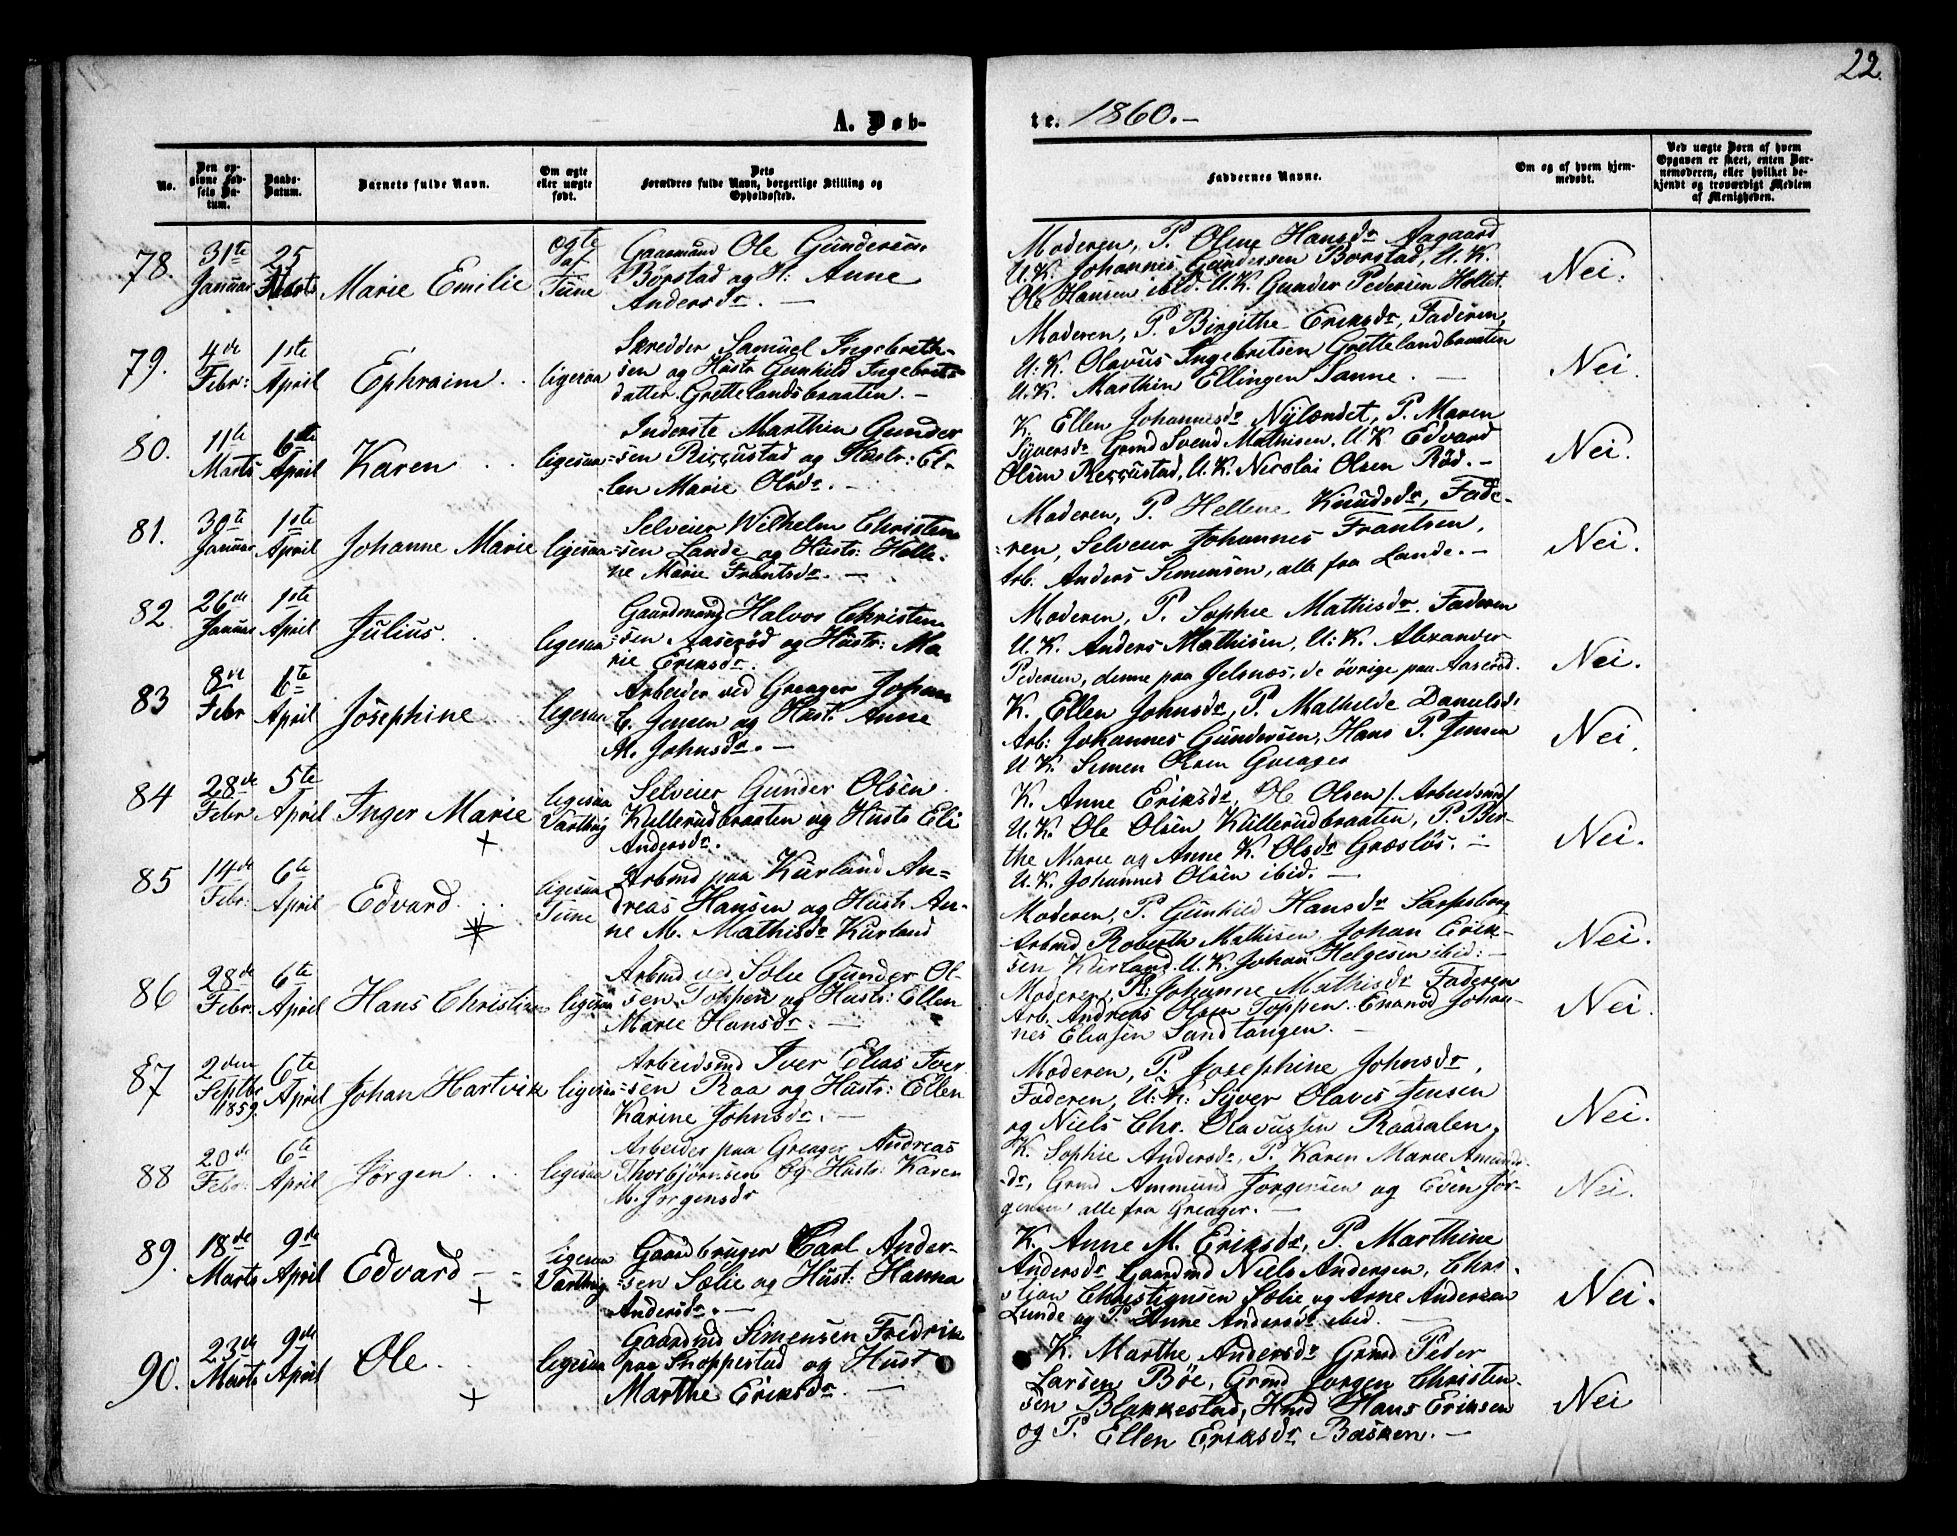 22.
A. Døb-
te. 1860.-
No.
Den opgivne Fødsels Datum.
Daabs-Datum.
Barnets fulde Navn.
Om ægte eller uægte født.
Dets Forældres fulde Navn, borgerlige Stilling og Opholdssted.
Faddernes Navne.
Om og af hvem hjemmedøbt.
Ved uægte Børn af hvem Opgaven er skeet, enten Barnemoderen, eller hvilket bekjendt og troværdigt Medlem af Menigheden.
78. 31te Januar 25 Marts Marie Emilie ægte af Tune
Gaarmand Ole Gundersen
Børstad og H: Anne
Andersdr. -
Moderen, P. Oline Hansdr Aagaard
U.K. Johannes Gundersen Borstad, U.K.
Ole Hansen ibid. U.K. Gunder Pedersen Holtet
Nei.
79. 4de Febr: 1ste April Ephraim. . ligesaa
Skredder Samuel Ingebreth-
sen og Hustr Gunhild Ingebrits-
datter Grettelandsbraaten. -
Moderen, P. Birgithe Eriksdr, Faderen,
U.K. Olavus Ingebritsen Grettelandbraaten
U.K. Marthin Ellingsen Sanne. -
Nei.
80. 11te Marts 6te April Karen . . ligesaa
Inderste Marthin Gunder
=sen og Hustr: El-
len Marie Olsdr. -
K. Ellen Johannesdr Nylændet, P. Maren
Syversdr Grmd Svend Mathisen, U.K. Edvard
Olsen U.K. Nicolai Olsen Rød. -
Nei.
81. 30te Januar 1ste April Johanne Marie ligesaa
Selveier Wilhelm Christen
=sen Lande og Hustr: Helle-
ne Marie Frantsdr. -
Moderen, P. Hellene Knudsdr, Fade-
=ren, Selveier Johannes Frantsen,
Arb. Anders Simensen, alle fra Lande. -
Nei.
82. 26de Januar 1ste April Julius. . ligesaa
Gaardmand Halvor Christen
=sen Aaserød og Hustr: Ma
rie Eriksdr.
Moderen, P. Sophie Mathisdr. Faderen
U.K. Anders Mathisen, U:K. Alexander
Pedersen, denne paa Jelsnæs, de øvrige paa Aaserød.
Nei.
83 8de Febr 6te April Josephine ligesaa
Arbeider ved Greager Johan
C. Jensen og Hust: Anne
M. Johnsdr. -
K. Ellen Johnsdr, P. Mathilde Danielsd:
Arb: Johannes Gundersen, Hans P. Jensen
U K. Simen Olsen Greager
Nei.
84 28de Febr. 5te April Inger Marie + ligesaa Varteig
Selveier Gunder Olsen
Kullerudbraaten og Hustr Eli
Andersdr.
K. Anne Eriksdr, Ole Olsen /. Arbeidsmd/
U.K. Ole Olsen Kullerudbraaten, P. Ber-
the Marie og Anne K. Olsdr Græsløs. -
U.K. Johannes Olsen ibid. -
Nei.
85 14de Febr: 6te April Edvard. . . ligesaa Tune
Arbmd paa Kurland An=
dreas Hansen og Hust: An-
ne M. Mathisdr Kurland
Moderen, P. Gunhild Hansdr Sarpsborg
Arbmd Roberth Mathisen Johan Erik-
sen Kurland U.K. Johan Helgesen ibid: -
Nei.
86 28de Febr. 6te April Hans Christian ligesaa
Arbmd ved Sølie Gunder Ol-
sen Toppen og Hustr: Ellen
Marie Hansdr. -
Moderen, P: Johanne Mathisdr Faderen
Arb. Andreas Olsen Toppen. Johan-
nes Eliasen Sandtangen. -
Nei.
87 2den Septbr 1859. 6te April Johan Hartvik ligesaa
Arbeidsmd Iver Elias Iver
=sen Raa og Hustr: Ellen
Karine Johnsdr. -
Moderen, P. Josephine Johnsdr,
Faderen, U:K: Syver Olaves Jensen
og Niels Chr. Olavussen Raadalen,
Nei.
88 20de Febr: 6te April Jörgen . . ligesaa
Arbeider paa Greager Andreas
Thorbjørnsen Og Hustr: Karen
M. Jørgensdr
K. Sophie Andersdr, P. Karen Marie Amunds-
-dr, Grmd Ammund Jörgensen og Even Jör-
gensen alle fra Greager. -
Nei.
89. 18de Marts 9de April Edvard - - + ligesaa Varteig
Gaardbruger Carl Ander-
=sen Sælie og Hust: Hanna
Andersdr. -
K. Anne M. Eriksdr, P. Marthine
Andersdr Gaardmd Niels Andersen, Chri-
stian Christiansen Sølie og Arne Andersen
Lunde og P. Anne Andersdr ibid. -
Nei.
90. 23de Marts 9de April Ole. . + ligesaa
Gaardmd Simensen Fredrik
paa Snoppestad og Hust
Marthe Eriksdr. -
K. Marthe Andersdr Grmd Peder
Larsen Böe, Grmd Jörgen Christen-
sen Blakkestad, Hmd Hans Eriksen
og P. Ellen Eriksdr Basken. -
Nei